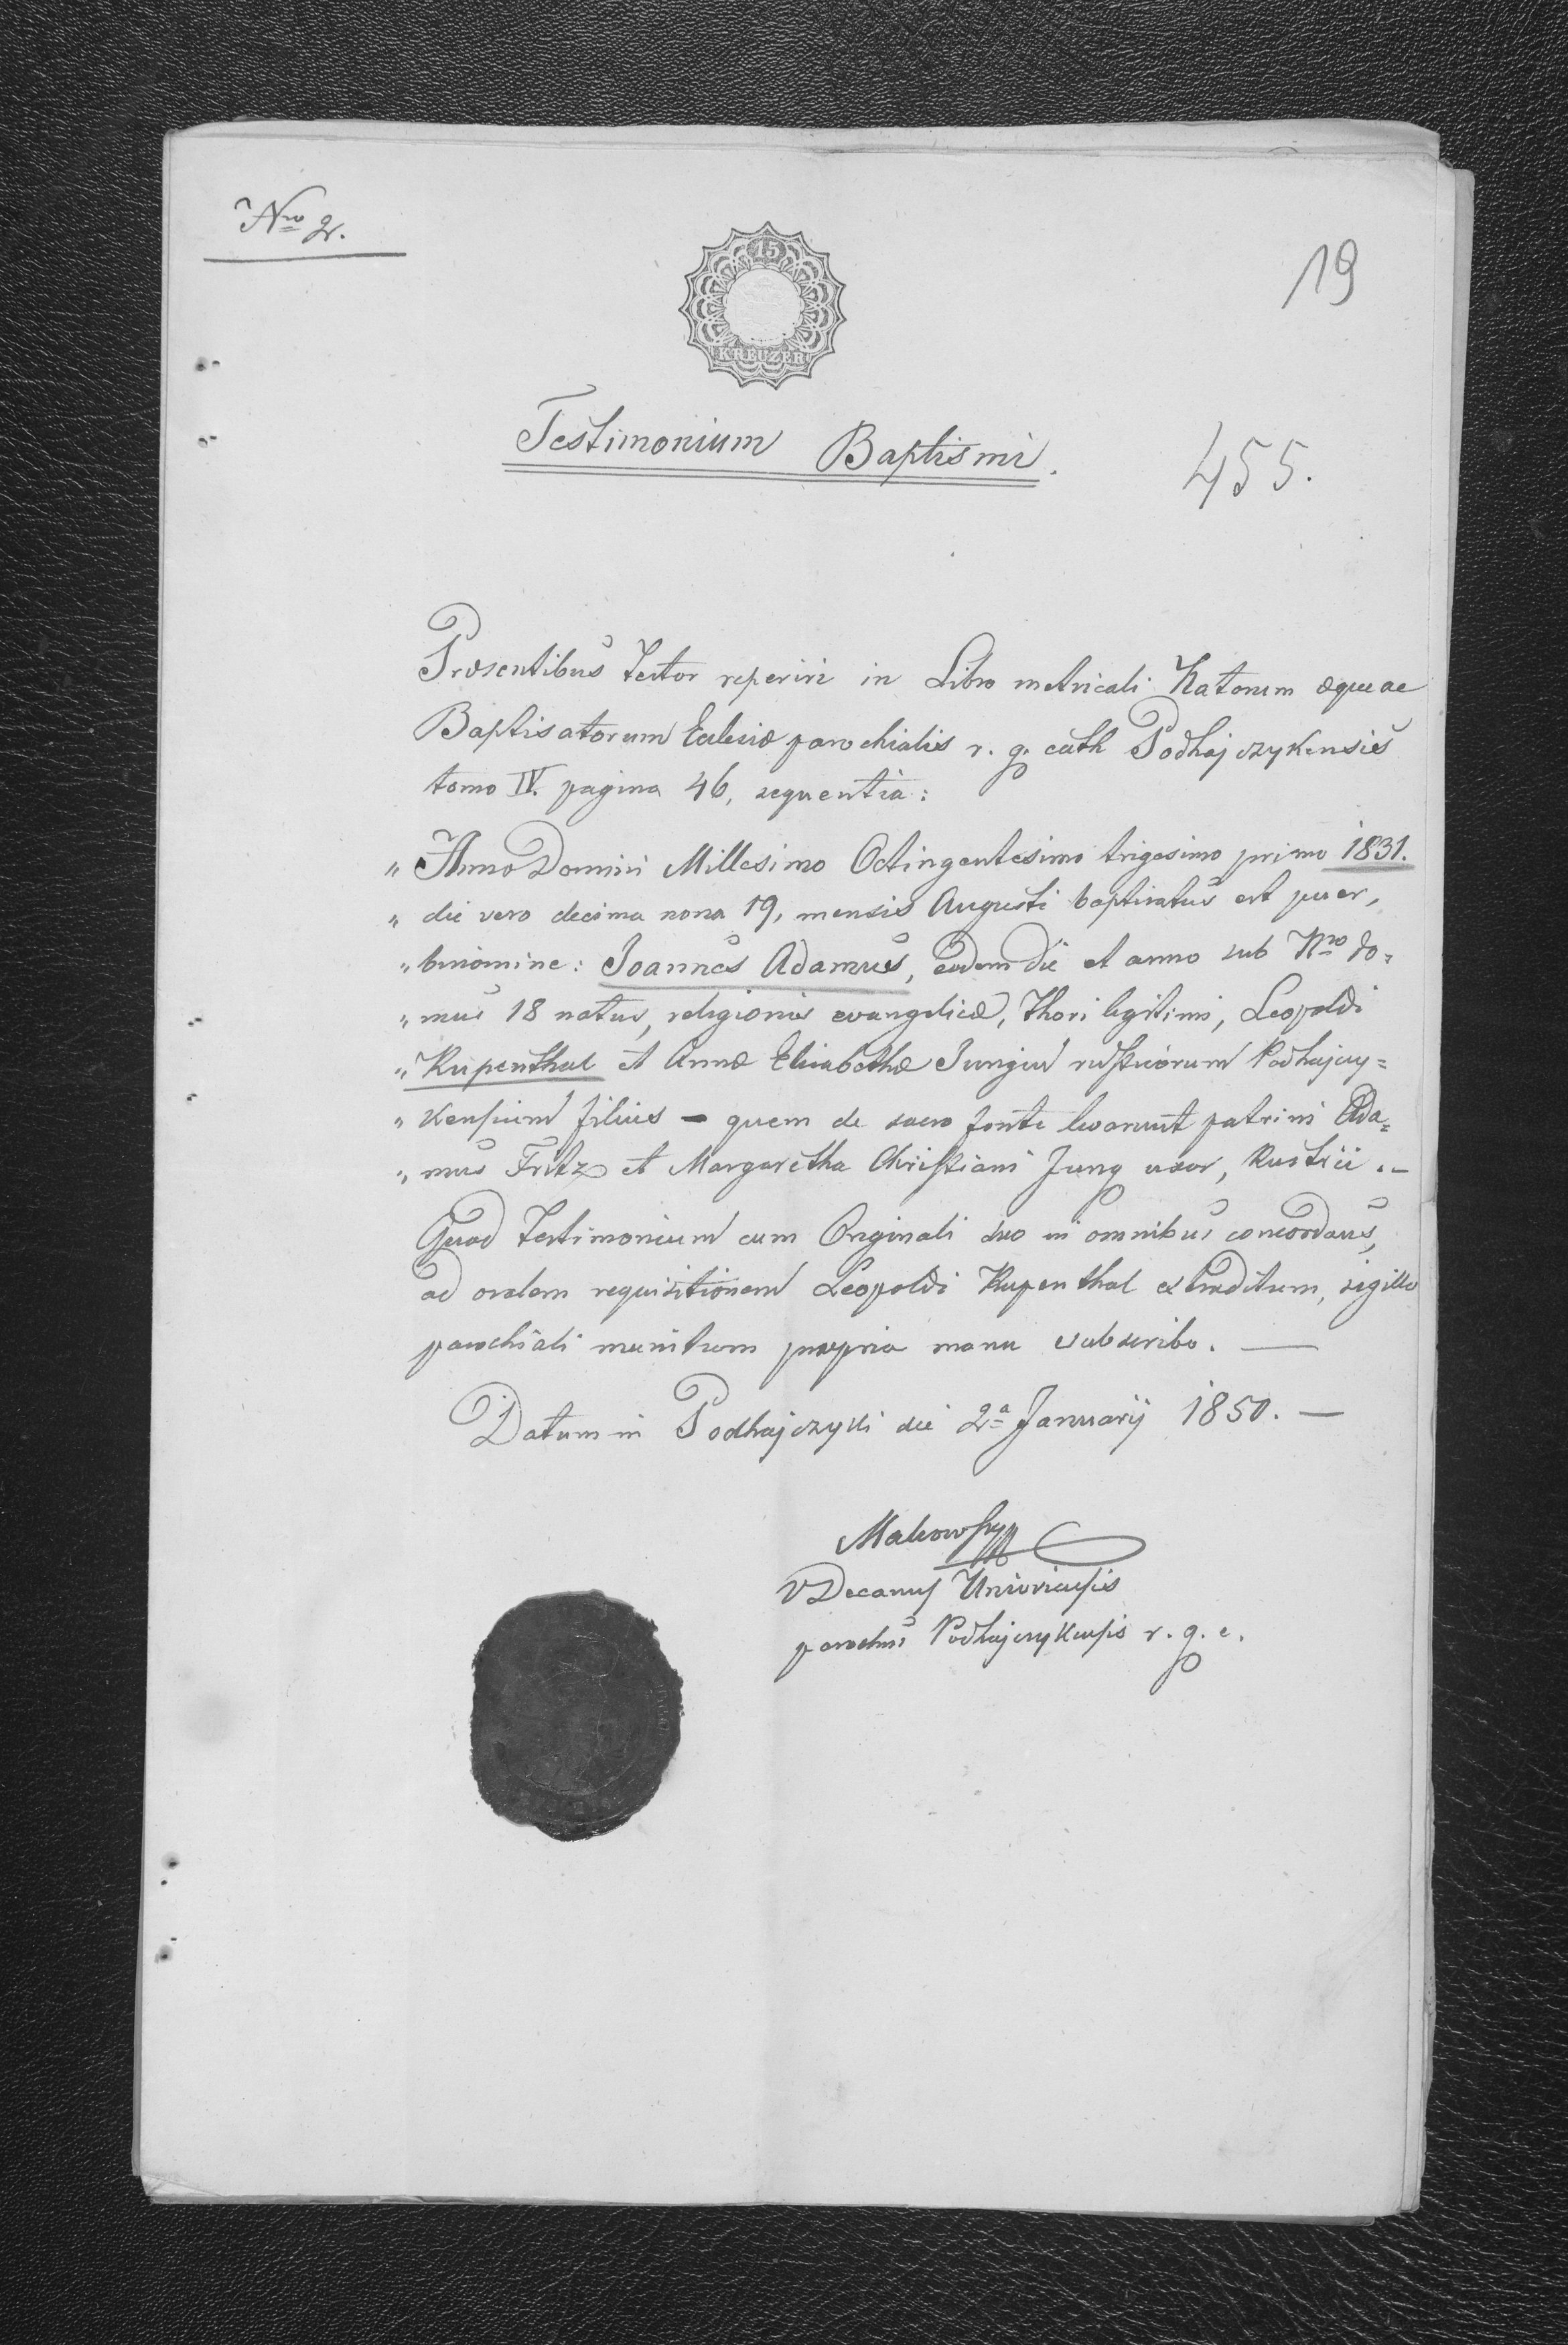 Nro 2.
19
15
KREUZER
Testimonium Baptismi.
455.
Præsentibus testor reperiri in Libro metricali Natorum æque ac
Baptisatorum Ecclesiæ parochialis r. g. cath Podhajczykensis
tomo IV. pagina 46, sequentia:
„ Anno Domini Millesimo Octingentesimo trigesimo primo 1831.
„ die vero decima nona 19, mensis Augusti baptisatus est puer,
„ binomine: Joannes Adamus, eodem die et anno sub Nro do=
„ mus 18 natus, religionis evangelicæ, thori legitimi, Leopoldi
„ Rupenthal et Annæ Elisabethæ Jungin rusticorum Podhajczy=
„ kensium filius – quem de sacro fonte levarunt patrini Ada=
„ mus Fritz et Margaretha Christiani Jung uxor, Rustici .–
Quod testimonium cum Originali suo in omnibus concordans,
ad oralem requisitionem Leopoldi Rupenthal extraditum, sigillo
parochiali munitum propria manu subscribo. —
Datum in Podhajczyki die 2a Januarij 1850. —
VDecanus
parochus Podhajczykensis r. g. c.